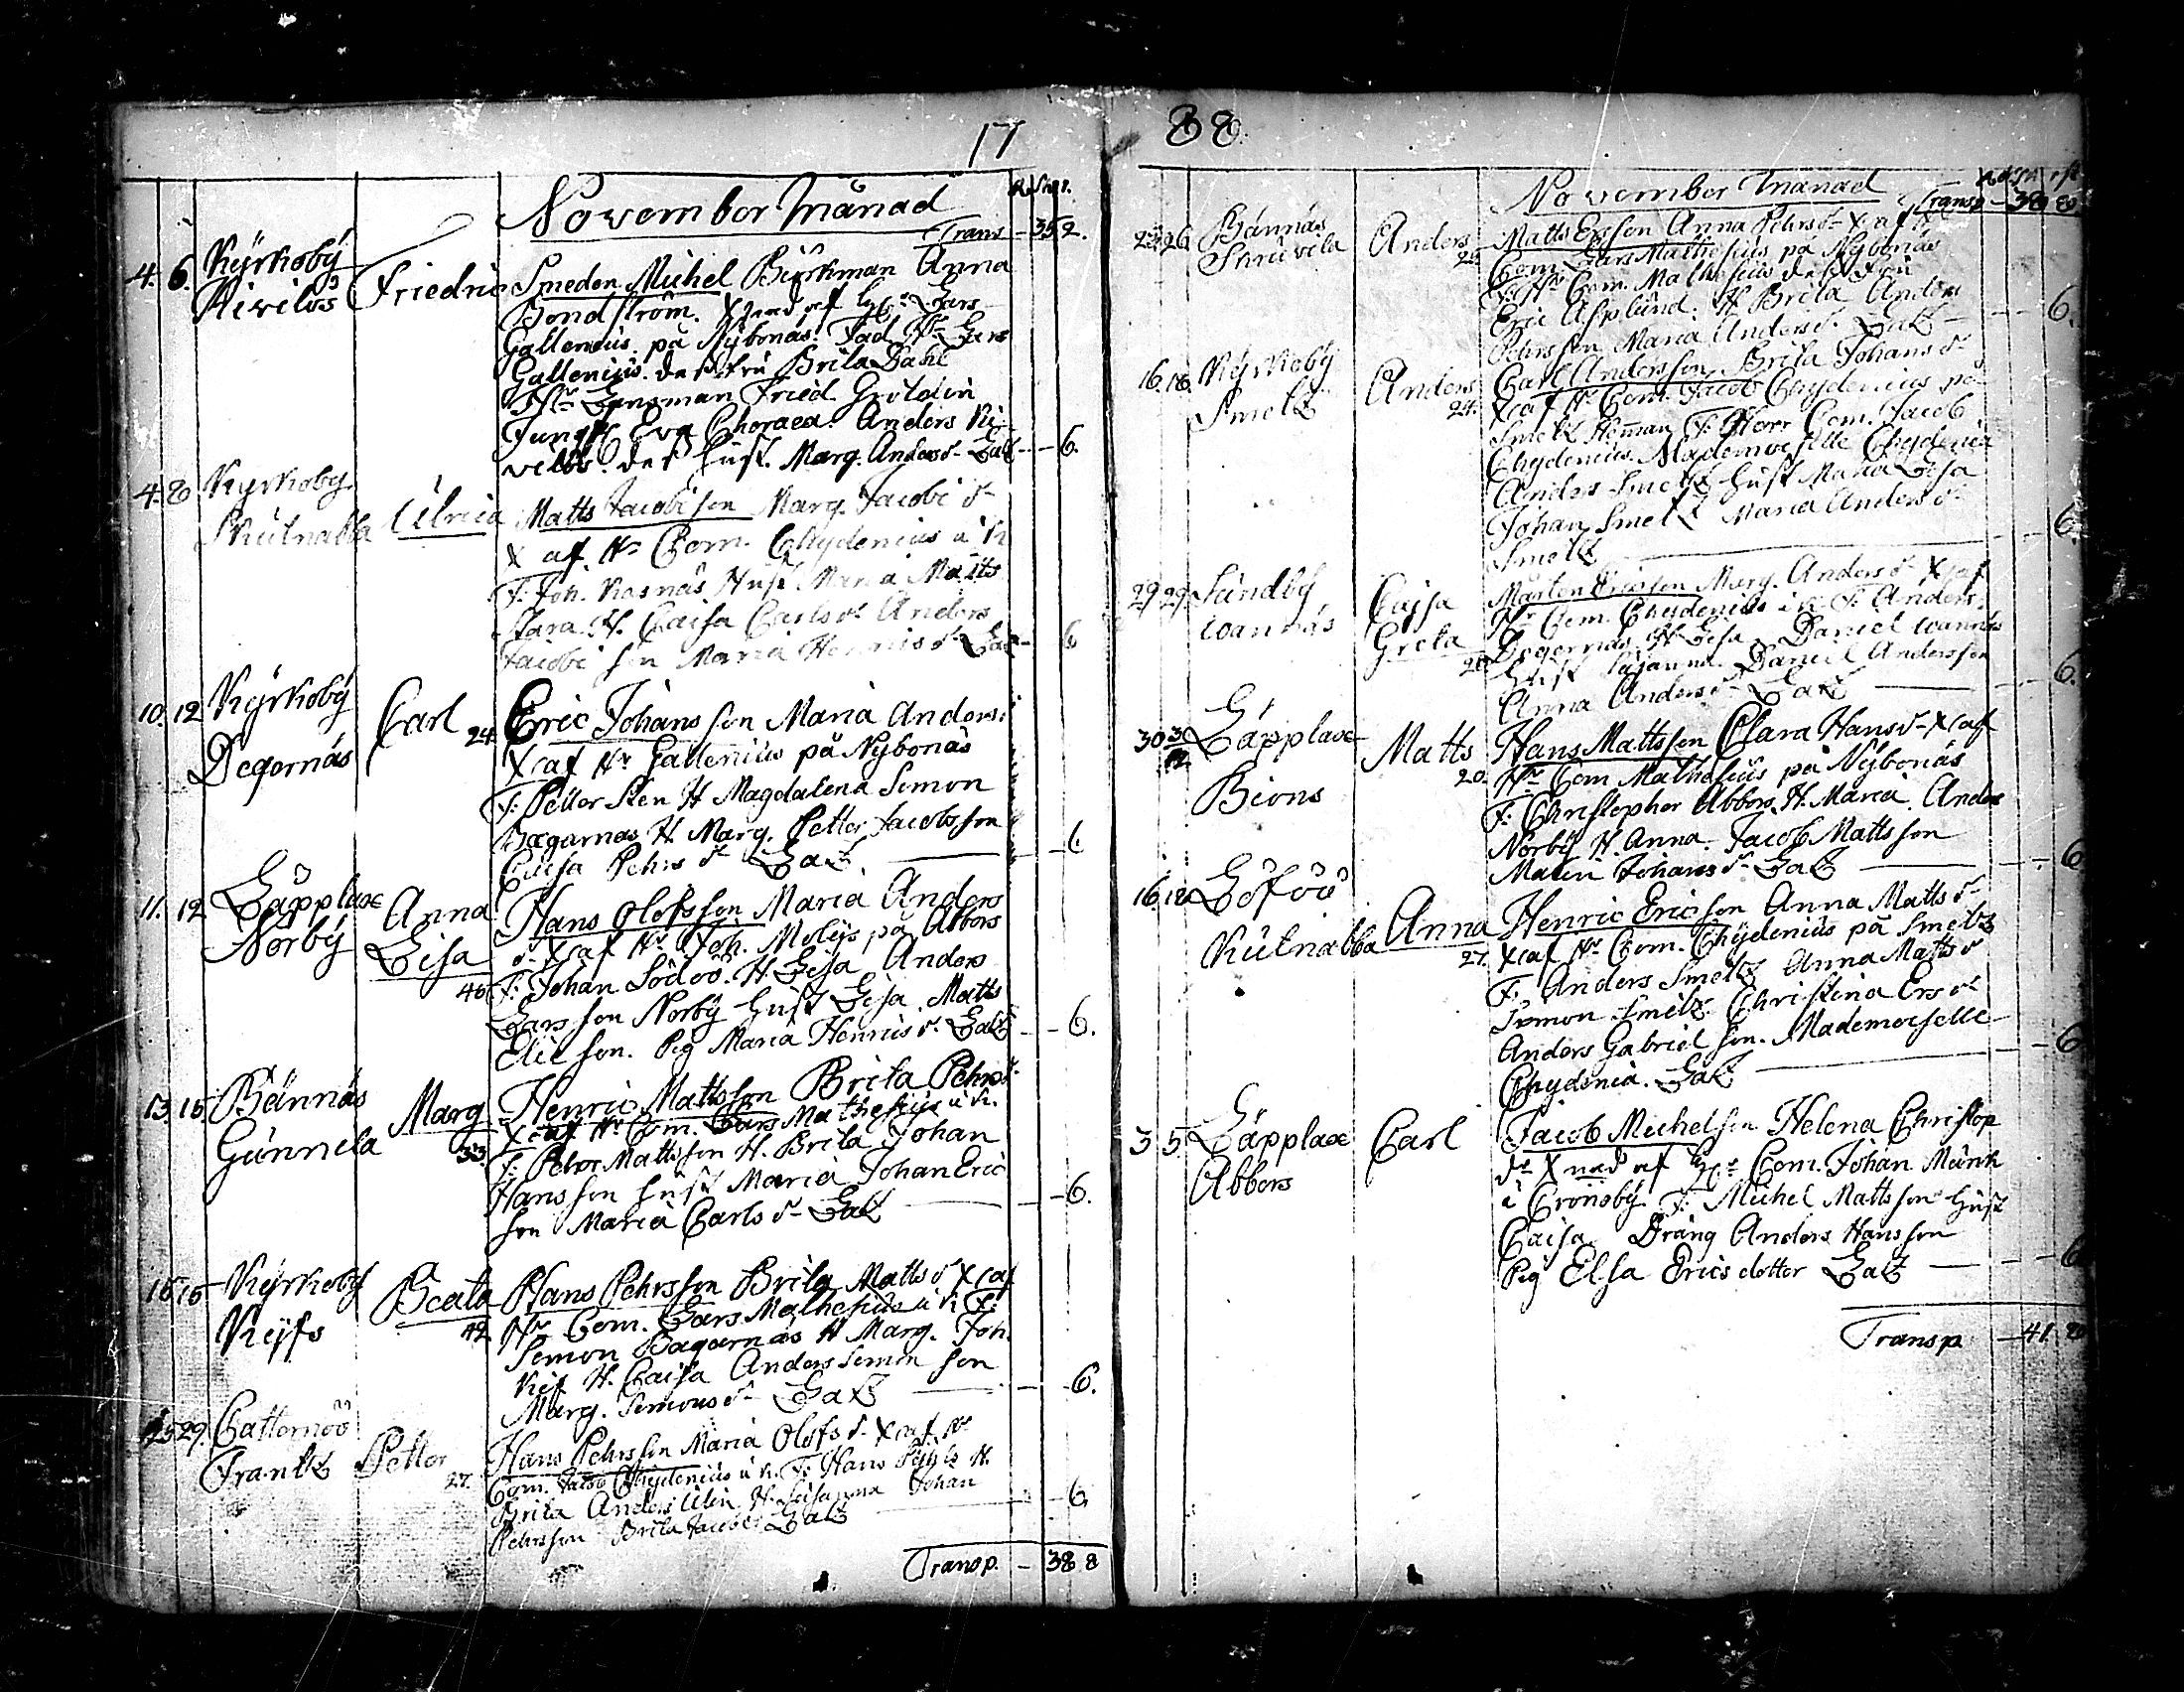 17
November Månad
R. Sk. r.
Trans – 35 2.
4. 6. Kÿrkobÿ
Kivilös Friedric Smeden Michel Biörkman Anna
Bondström. X nöd af H: Lars
Gallenius på Nÿbonäs. Fad. Hr Lars
Gallenius. des fru Brita Dahl
Hr Länsman Fried.
Jungf. Eva Choraea. Anders Ki-
vilös. des hust. Marg. Andersdr Lat – 6.
4. 8 Kyrkoby
Kutnabba Ulrica Matts Jacobsson Marg. Jacobsdr
X af Hr Com. Chydenius i K
F: Joh. Kosnäs Hust. Maria Matts
Stara H. Caisa Carlsdr Anders
Jacobsson Maria Henricsdr Lat – 6
10. 12 Kÿrkobÿ
Degernäs Carl 24. Eric Johansson Maria Anders:
X af Hr Gallenius på Nybonäs
F: Petter Sten H Magdalena Simon
Dägarnäs H Marg. Petter Jacobsson
Caisa Pehrsdr Lat – 6
11. 12 Läpplax
Norbÿ Anna
Lisa 40 Hans Olofsson Maria Anders
dr X af Hr Joh. på Abbors
F: Johan Södöö. H. Lisa Anders
Larsson Norbÿ hust Lisa. Matts
Elieson. Pig Maria Henricsdr. Lat – 6.
13. 15. Bännäs
Gunnila Marg 33. Henric Mattsson Brita Pehrsdr
X af Hr Com. Lars Mathesius i K.
F: Pehr Mattsson H. Brita Johan
Hansson hust Maria Johan Eric
son Maria Carlsdr Lat – 6.
15 16 Kÿrkobÿ
Kejfs Beata 42 Hans Pehrsson Brita Mattsdr X af
Hr Com. Lars Mathesius i K F:
Simon Dagarnäs H Marg. Joh.
Kejf H. Caisa Anders Simonson
Marg. Simonsdr Lat – 6.
25 29. Catternöö
Frantz Petter 27. Hans Pehrsson Maria Olofsdr X af Hr
Com. Jacob Chydenius i K. F: Hans H.
Brita Anders Ulin H. Susanna Johan
Pehrsson Brita Jacobsdr Lat – 6.
Transp. – 38 8
88.
November Månad
Transp – 38 8.
25 26 Bännäs
Skruvila Anders Matts Ersson Anna Pehrsdr X af Hr
Com. Lars Mathesius på Nÿbonäs
F: Hr Com. Mathesius des fru
Eric Asplund. H Brita Anders
Pehrsson Maria Andersdr. Lat – 6.
16. 18 Kyrkoby
Smeltz Anders 24. Carl Andersson Brita Johansdr
X af Hr Com. Jacob Chydenius på
Smeltz Hemman F: Herr Com. Jacob
Chydenius. Mademoiselle Chydenia
Anders Smeltz hust Maria Lisa
Johan Smeltz Maria Andersdr
Smeltz – 6.
29 29. Sundbÿ
wannäs Cajsa
Greta Mårten Ericsson Marg. Andersdr X af
Hr Com. Chydenius i K F: Anders
Degernäs H Lisa. Daniel wannäs
hust Susanna. Daniel Andersson
Anna Andersdr Lat – 6.
30 3/12 Läpplax
Biors Matts 20. Hans Mattsson Clara Hansdr X af
Hr Com Mathesius på Nÿbonäs
F: Christopher Abbors. H. Maria. Anders
Norbÿ H. Anna. Jacob Mattsson
Malin Johansdr Lat – 6
16. 18 Löföö
Kutnabba Anna 27. Henric Ericson Anna Mattsdr
X af Hr Com. Chÿdenius på Smeltz
F: Anders Smeltz Anna Mattsdr
Simon Smeltz. Christina Ersdr
Anders Gabrielson. Mademoiselle
Chydenia. Lat – 6
3 5 Läpplax
Abbors Carl Jacob Michelson Helena Christop
dr X nöd af H: Com. Johan Munk
i Cronobÿ F: Michel Mattsson hust
Caisa. Dräng Anders Hansson
Pig Elsa Ericsdotter Lat – 6
Transp – 41. 20